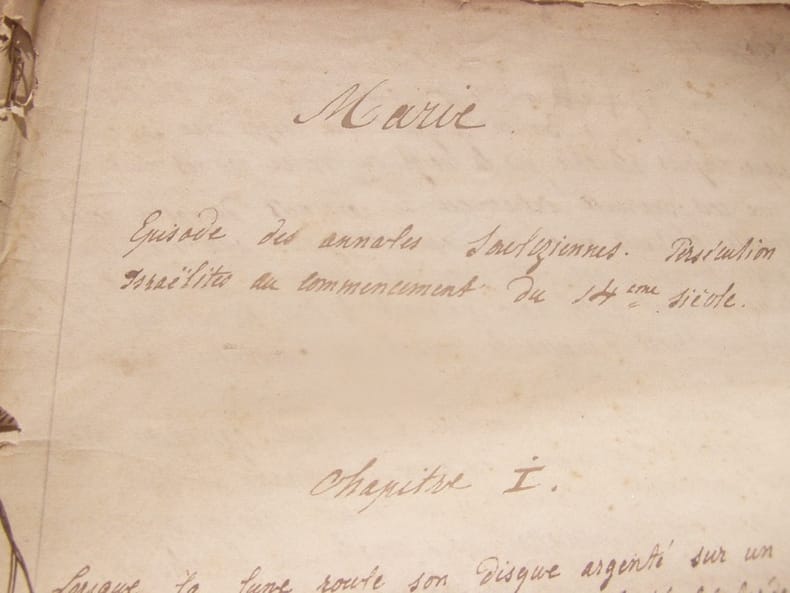 Marie
Episode des annales Soultziennes. Persécution
Israëlites au commencement du 14ème siècle.
Chapitre I.
Lorsque la lune roule son disque argenté sur un